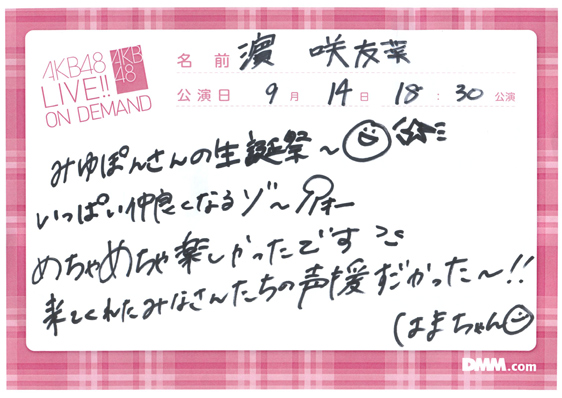 AKB48
LIVE!!
ON DEMAND
AKB
48
名前 濵 咲友菜
公演日 9月 14日 18:30 公演
みゆぽんさんの生誕祭〜
いっぱい仲良くなるゾ〜
めちゃめちゃ楽しかったです
来てくれたみなさんたちの声援すごかった〜!!
はまちゃん
DMM.com